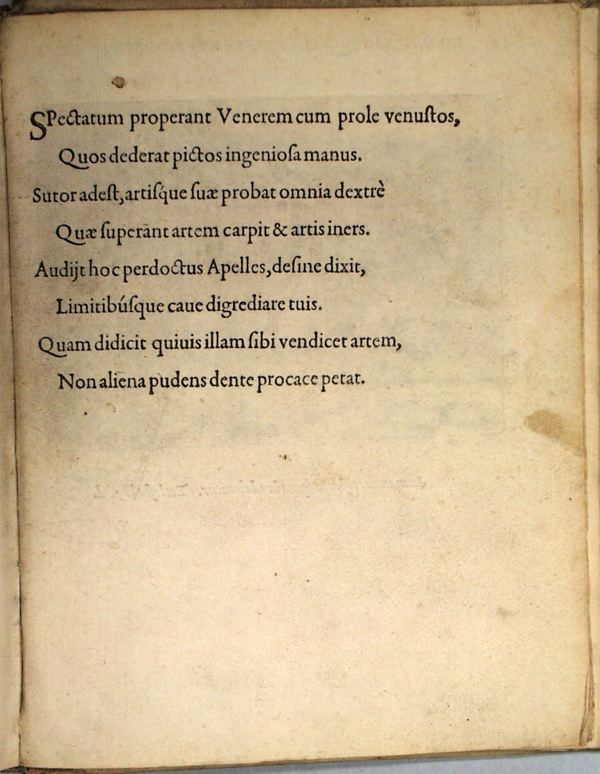 SPectatum properant Venerem cum prole venuſtos,
Quos dederat pictos ingenioſa manus.
Sutor adeſt, artiſque ſuæ probat omnia dextrè
Quæ ſuperànt artem carpit & artis iners.
Audijt hoc perdoctus Apelles, deſine dixit,
Limitibúſque caue digrediare tuis.
Quam didicit quiuis illam ſibi vendicet artem,
Non aliena pudens dente procace petat.